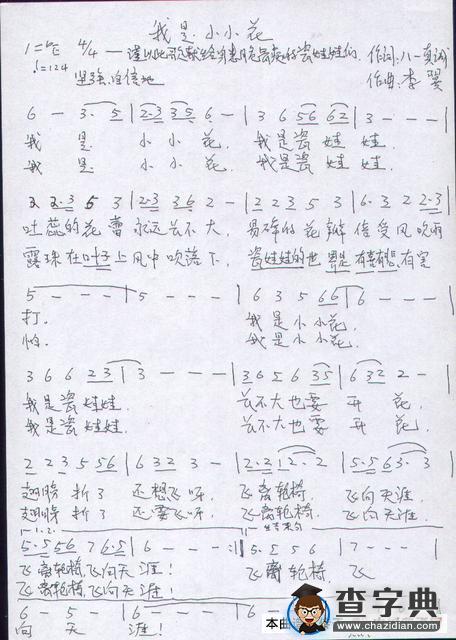 我是小小花
1=♭E 4/4 —谨以此歌献给身患脆骨病的瓷娃娃们 作词:八一真诚
♩=124 坚强、自信地 作曲:李翼
6 - 3· 5 | 2·3 35 6 - | 3 6 56 62 | 3 - - - |
我 是 小 小 花, 我是瓷 娃 娃.
我 是 小 小 花, 我是瓷 娃 娃.
2 2·3 5 3 | 2·3 36 2 - | 2 2 3 5 3 | 6· 3 2 2·3
吐蕊的花蕾永远长不大, 易碎的花瓣 经受风吹雨
露珠在叶子上风中吹落下, 瓷娃娃的世界是有喜有悲,有室
5 - - - | 5 - - - | 6 3 5 66 | 6 - - - |
打. 我是小小花,
怕. 我是小小花,
3 6 6 23 | 3 - - - | 3 6 5 6 35 | 6 32 2 - |
我是瓷娃娃. 长不大也要 开 花,
我是瓷娃娃. 长不大也要 开 花,
2 2 3 5 56 | 6 32 3 - | 2·2 1 2· 2 | 5·5 63· 3 |
翅膀 折了 还想飞呀, 飞离轮椅, 飞向天涯,
翅膀 折了 还要飞呀, 飞离轮椅, 飞向天涯.
1.2. 结束句
5·5 56 7 65 | 6 - - - :| 5· 5 5 6 | 7 - - - |
飞离轮椅,飞向天涯! 飞离轮椅, 飞
飞离轮椅,飞向天涯!
6 - 5 - | 6 - - - | 6 - - -
向 天 涯!
本曲
查字典
www.chazidian.com